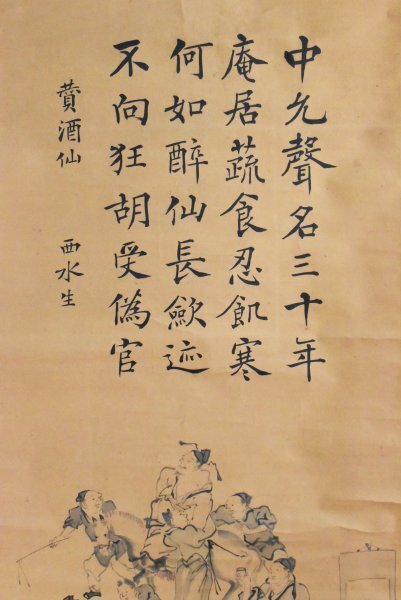 中允聲名三十年
庵居蔬食忍飢寒
何如醉仙長斂迹
不向狂胡受僞官
賛酒仙 西水生